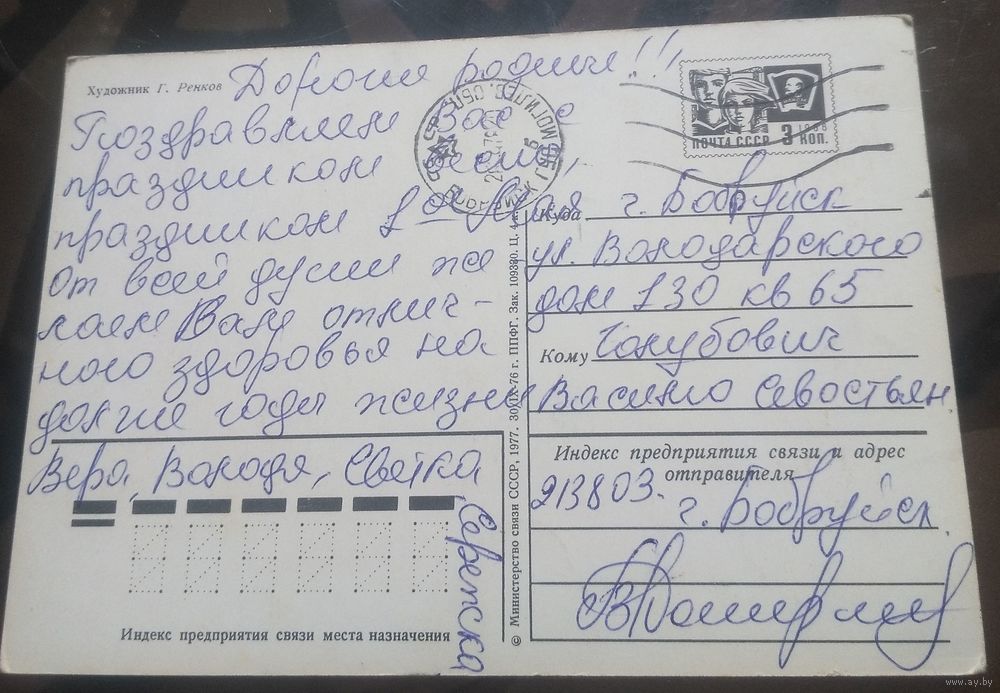 Художник Г. Ренков
Дорогие родные!!!
Поздравляем Вас с
праздником весны,
праздником 1ое Мая
От всей души же-
лаем Вам отлич-
ного здоровья на
долгие годы жизни
Вера, Володя, Светка
Сережка
Индекс предприятия связи места назначения
© Министерство связи СССР, 1977. 30/IX-76 г. ППФГ. Зак. 109380. Ц. 4 к.
ПОЧТА СССР 3 КОП.
1966
Куда г. Бобруйск
ул. Володарского
дом 130 кв 65
Кому Голубович
Василию Севостьян.
Индекс предприятия связи и адрес
отправителя
213803.
г. Бобруйск
www.ay.by